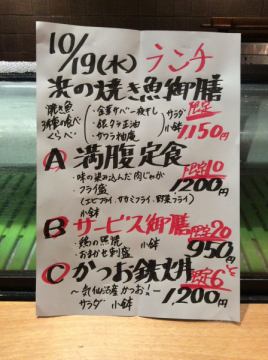 10/19(水) ランチ
浜の焼き魚御膳
焼き魚 ・金華サバ一夜干し サラダ 限定
3種の食べ ・銀ダラ正油 小鉢
くらべ ・サワラ柚庵 1150円
A 満腹定食
・味の染み込んだ肉じゃが 限定10
フライ盛 1200円
(エビフライ、ササミフライ、野菜フライ)
小鉢
B サービス御膳 限定20
・鶏の照焼 小鉢 950円
・おまかせ刺盛
C かつお鉄火丼 限定6
〜気仙沼産かつお!〜
サラダ 小鉢 1200円